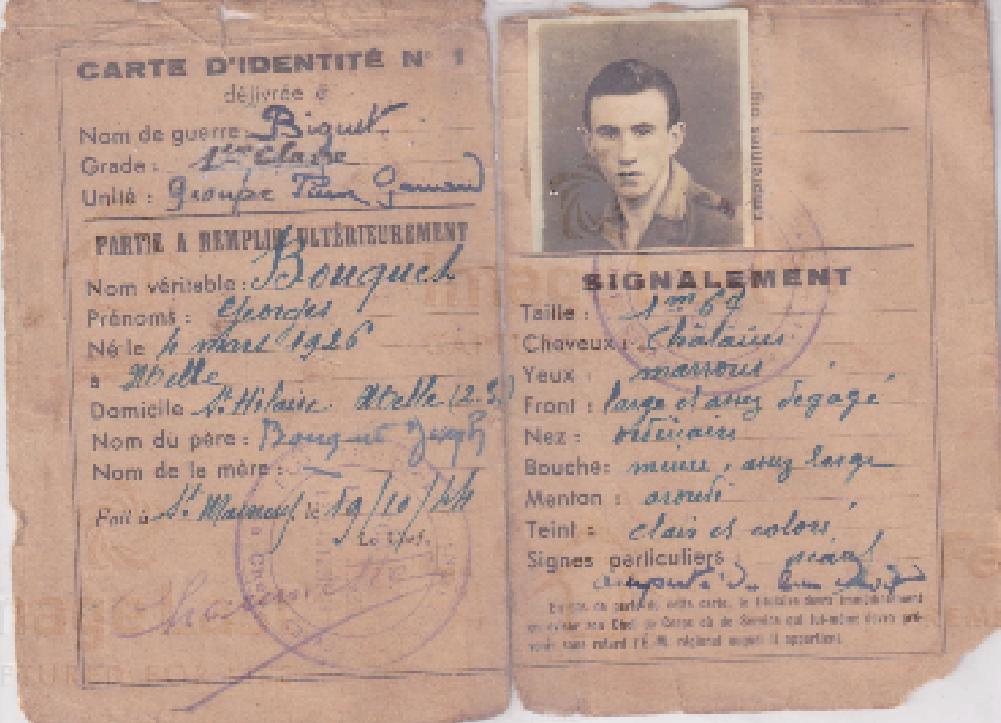 CARTE D'IDENTITÉ N° 1
délivrée à
Nom de guerre: Biquet
Grade: 1ère Classe
Unité: Groupe
PARTIE A REMPLIR ULTÉRIEUREMENT
Nom véritable: Bouquet
Prénoms: Georges
Né le 4 mars 1926
à Abelle
Domicile St Hilaire Abelle
Nom du père: Bouquet Joseph
Nom de la mère: —
Fait à le 19/10/44
Le Chef.
empreintes dig
SIGNALEMENT
Taille: 1m 69
Cheveux: Châtains
Yeux: marrons
Front: large et assez dégagé
Nez: ordinaire
Bouche: assez large
Menton: arrondi
Teint: clair et coloré
Signes particuliers
amputé du
En cas de perte de cette carte, le titulaire devra immédiatement
en aviser son Chef de Corps ou de Service qui lui-même devra pré-
venir sans retard l'É.-M. régional auquel il appartient.